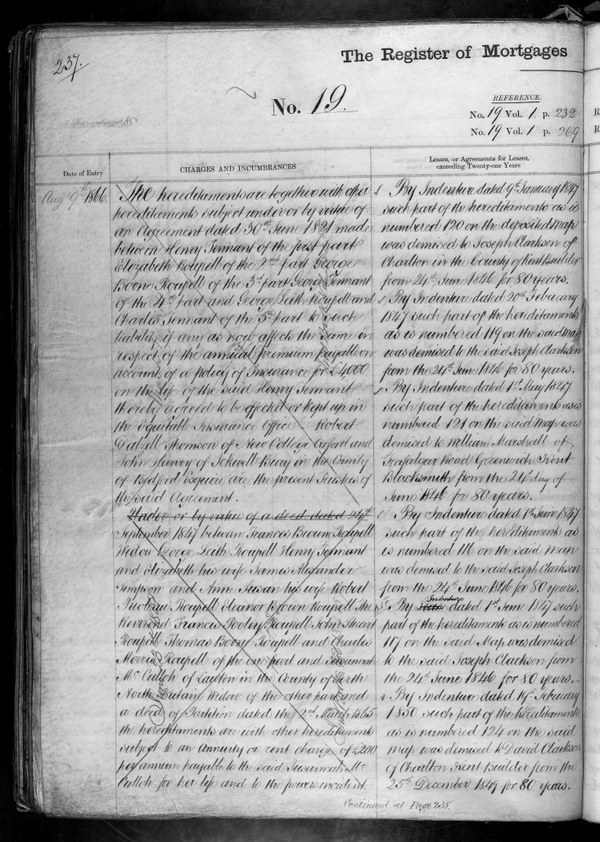 237.
The Register of Mortgages
No. 19.
REFERENCE.
No. 19 Vol. 1 p. 232
No. 19 Vol. 1 p. 269
Date of Entry
CHARGES AND INCUMBRANCES
Leases, or Agreements for Leases,
exceeding Twenty-one Years
Aug 9th 1866.
The hereditaments are together with other
hereditaments subject under or by virtue of
an Agreement dated 30th June 1821 made
between Henry Tennant of the first part
Elizabeth Roupell of the 2nd part George
Boone Roupell of the 3rd part George Tennant
of the 4th part and George Leith Roupell and
Charles Tennant of the 5th part to such
liability if any as now affects the same in
respect of the annual premium payable on
account of a policy of Insurance for £4000
on the life of the said Henry Tennant
thereby agreed to be effected or kept up in
the Equitable Insurance Office. Robert
Thomson of New College Oxford and
John Harvey of Ickwell Bury in the County
of Bedford Esquire are the present Trustees of
the said Agreement.
Under or by virtue of a deed dated 24th
September 1847 between Frances Brown Roupell
Widow George Leith Roupell Henry Tennant
and Elizabeth his wife James Alexander
Simpson and Ann Susan his wife Robert
Roupell Eleanor Brown Roupell The
Reverend Francis Roupell John Stuart
Roupell Thomas Boone Roupell and Charles
Morris Roupell of the one part and Susannah
McCulloh of in the County of Perth
North Britain Widow of the other part and
a deed of Partition dated the 2nd March 1865
the hereditaments are with other hereditaments
subject to an Annuity or rent charge of £200
per annum payable to the said Susannah Mc
Culloh for her life and to the powers incident
By Indenture dated 9th January 1847
such part of the hereditaments as is
numbered 120 on the deposited Map
was demised to Joseph Clarkson of
Charlton in the County of Kent Builder
from 24th June 1846 for 80 years.
By Indenture dated 20th February
1847 such part of the hereditaments
as is numbered 119 on the said Map
was demised to the said Joseph Clarkson
from the 24th June 1846 for 80 years.
By Indenture dated 1st May 1847
such part of the hereditaments as is
numbered 121 on the said Map was
demised to William Marshall of
Trafalgar Road Greenwich Kent
Blacksmith from the 24th day of
June 1846 for 80 years.
By Indenture dated 1st June 1847
such part of the hereditaments as
is numbered 116 on the said Map
was demised to the said Joseph Clarkson
from the 24th June 1846 for 80 years.
By Indenture dated 1st June 1847 such
part of the hereditaments as is numbered
117 on the said Map was demised
to the said Joseph Clarkson from
the 24th June 1846 for 80 years.
By Indenture dated 19th February
1850 such part of the hereditaments
as is numbered 124 on the said
Map was demised to David Clarkson
of Charlton Kent Builder from the
25th December 1849 for 80 years.
Continued at Page 238.